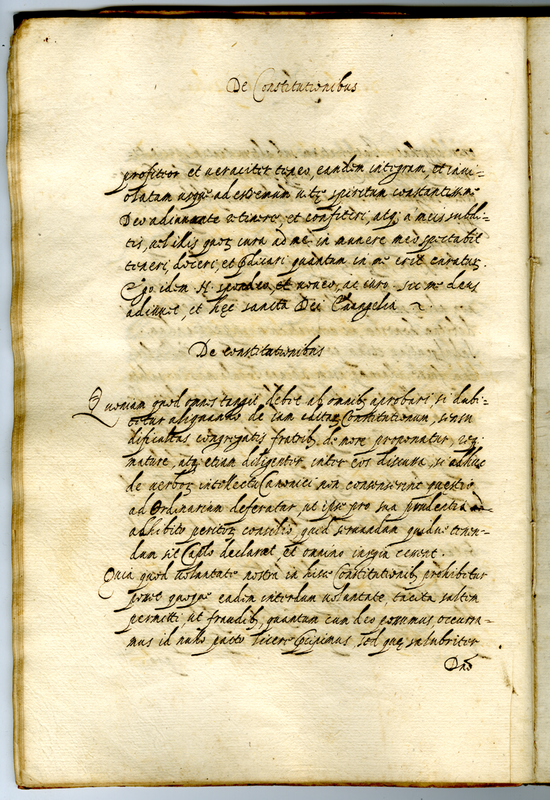 De Constitutionibus
profiteor et veraciter teneo, eandem integram, et invi=
olatam usque ad extremum vitę spiritum constantissime
Deo adiuvante retinere, et confiteri, atq; a meis subdi=
tis, vel illis quoȝ cura ad me in munere meo spectabit
teneri, doceri, et pdicari quantum in me erit curatuȝ.
Ego idem N spondeo, et voveo, ac iuro. sic me deus
adiuvet, et hęc sancta Dei Evangelia
De constitutionibus
Quoniam quod omnes tangit, debet ab omnib; aprobari si dubi=
tetur aliquando de iam editaȝ Constitutionum, sensu
dificultas congregatis fratrib; de more proponatur,
mature, atq; etiam diligenter inter eos discussa, si adhuc
de verboȝ intellectu Canonici non consenserint questio
ad Ordinarium deferatur, ut ipse pro sua prudentia
adhibito peritoȝ consilio, quid servandum quidue tenen=
dum sit Caplo declaret et omnino
Quia quod voluntate nostra in hisce Constitutionib; prohibetur
posset quoque eadem interdum voluntate, tacita saltim
permitti, ut fraudib; quantum cum deo possumus occurra=
mus id nullo pacto licere sed quę salubriter